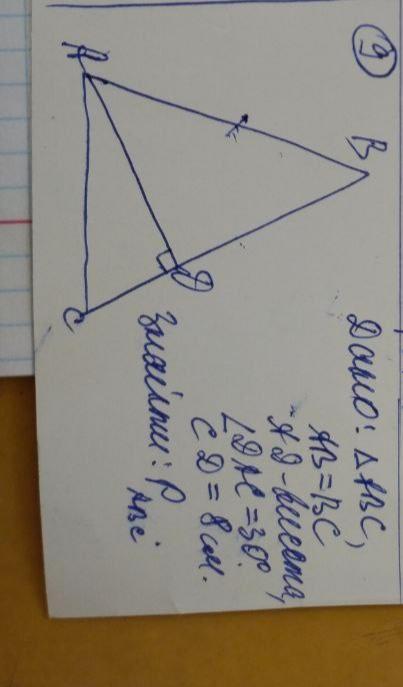 9
B
A
D
C
Дано: △ABC,
AB=BC
AD-висота,
∠DAC=30°,
CD=8см.
Знайти: P
ABC